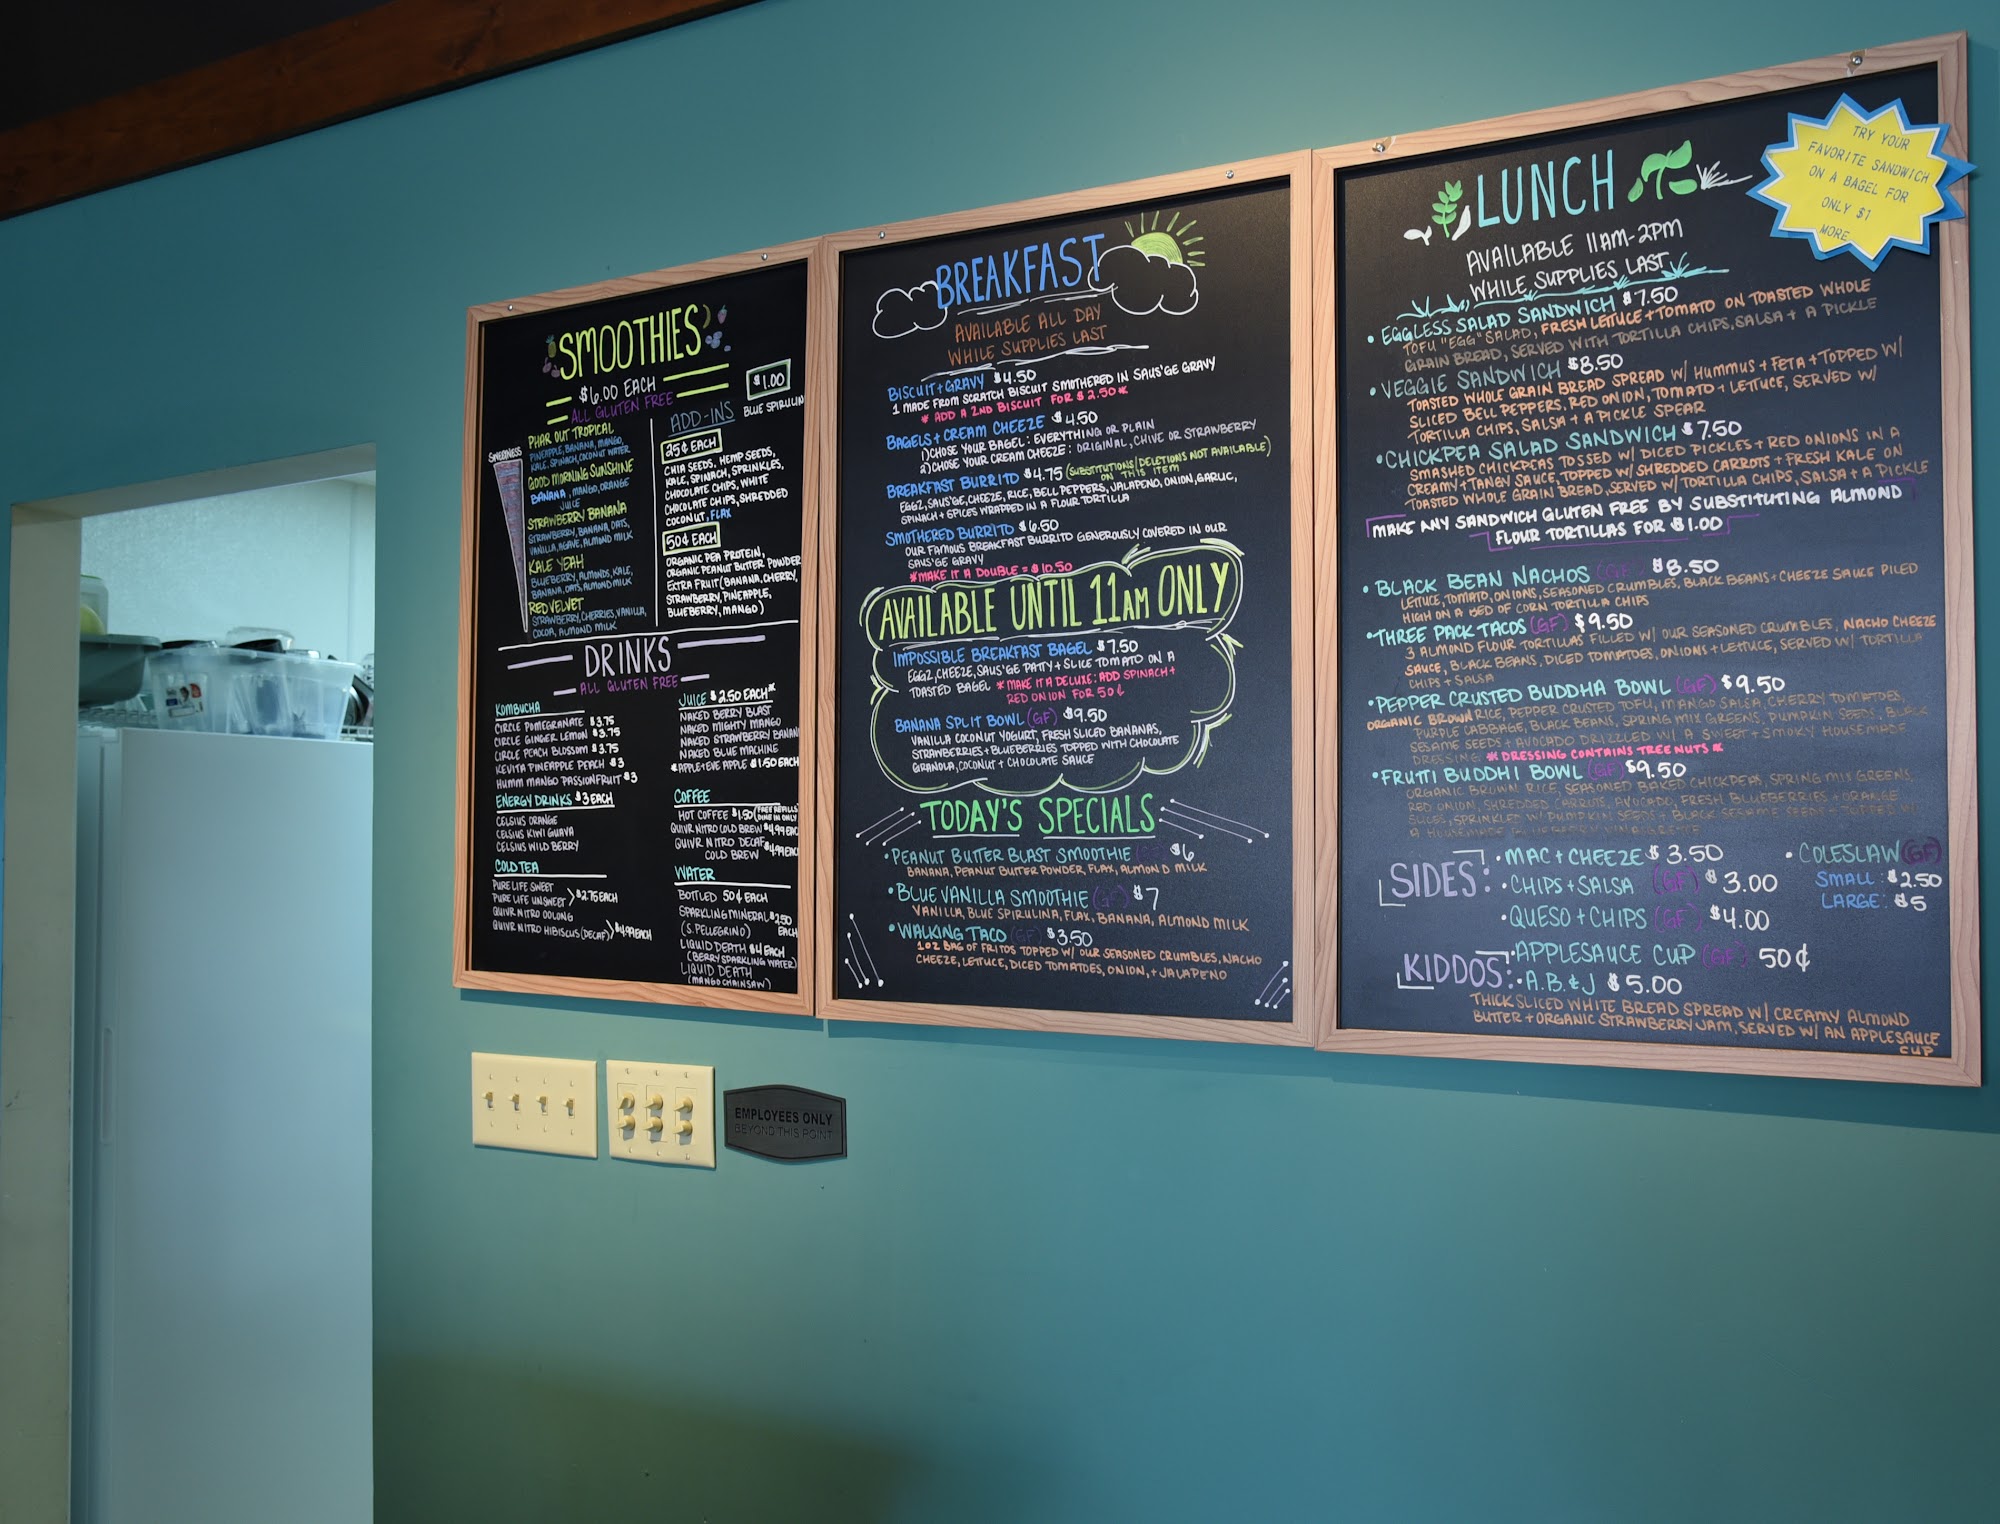 SMOOTHIES
$6.00 EACH
ALL GLUTEN FREE
SWEETNESS
PHAR OUT TROPICAL
PINEAPPLE, BANANA, MANGO,
KALE, SPINACH, COCONUT WATER
GOOD MORNING SUNSHINE
BANANA, MANGO, ORANGE
JUICE
STRAWBERRY BANANA
STRAWBERRY, BANANA, OATS,
VANILLA, AGAVE, ALMOND MILK
KALE YEAH
BLUEBERRY, ALMONDS, KALE,
BANANA, OATS, ALMOND MILK
RED VELVET
STRAWBERRY, CHERRIES, VANILLA,
COCOA, ALMOND MILK
$1.00
ADD-INS BLUE SPIRULINA
25¢ EACH
CHIA SEEDS, HEMP SEEDS,
KALE, SPINACH, SPRINKLES,
CHOCOLATE CHIPS, WHITE
CHOCOLATE CHIPS, SHREDDED
COCONUT, FLAX
50¢ EACH
ORGANIC PEA PROTEIN,
ORGANIC PEANUT BUTTER POWDER
EXTRA FRUIT (BANANA, CHERRY,
STRAWBERRY, PINEAPPLE,
BLUEBERRY, MANGO)
DRINKS
ALL GLUTEN FREE
KOMBUCHA
CIRCLE POMEGRANATE $3.75
CIRCLE GINGER LEMON $3.75
CIRCLE PEACH BLOSSOM $3.75
KEVITA PINEAPPLE PEACH $3
HUMM MANGO PASSIONFRUIT $3
ENERGY DRINKS $3 EACH
CELSIUS ORANGE
CELSIUS KIWI GUAVA
CELSIUS WILD BERRY
COLD TEA
PURE LIFE SWEET
PURE LIFE UNSWEET > $2.75 EACH
QUIVR NITRO OOLONG
QUIVR NITRO HIBISCUS (DECAF) > $4.99 EACH
JUICE $2.50 EACH*
NAKED BERRY BLAST
NAKED MIGHTY MANGO
NAKED STRAWBERRY BANAN
NAKED BLUE MACHINE
*APPLE+EVE APPLE $1.50 EACH
COFFEE
HOT COFFEE $1.50 (FREE REFILLS DINE IN ONLY)
QUIVR NITRO COLD BREW $4.99 EACH
QUIVR NITRO DECAF
COLD BREW $4.99 EACH
WATER
BOTTLED 50¢ EACH
SPARKLING MINERAL $2.50
(S. PELLEGRINO) EACH
LIQUID DEATH $4 EACH
(BERRY SPARKLING WATER)
LIQUID DEATH
(MANGO CHAINSAW)
BREAKFAST
AVAILABLE ALL DAY
WHILE SUPPLIES LAST
BISCUIT+GRAVY $4.50
1 MADE FROM SCRATCH BISCUIT SMOTHERED IN SAUS'GE GRAVY
* ADD A 2ND BISCUIT FOR $2.50 *
BAGELS + CREAM CHEEZE $4.50
1) CHOSE YOUR BAGEL: EVERYTHING OR PLAIN
2) CHOSE YOUR CREAM CHEEZE: ORIGINAL, CHIVE OR STRAWBERRY
BREAKFAST BURRITO $4.75 (SUBSTITUTIONS/DELETIONS NOT AVAILABLE)
ON THIS ITEM
EGGZ, SAUS'GE, CHEEZE, RICE, BELL PEPPERS, JALAPENO, ONION, GARLIC,
SPINACH + SPICES WRAPPED IN A FLOUR TORTILLA
SMOTHERED BURRITO $6.50
OUR FAMOUS BREAKFAST BURRITO GENEROUSLY COVERED IN OUR
SAUS'GE GRAVY
*MAKE IT A DOUBLE = $10.50
AVAILABLE UNTIL 11AM ONLY
IMPOSSIBLE BREAKFAST BAGEL $7.50
EGGZ, CHEEZE, SAUS'GE PATTY + SLICE TOMATO ON A
TOASTED BAGEL *MAKE IT A DELUXE: ADD SPINACH +
RED ONION FOR 50¢
BANANA SPLIT BOWL (GF) $9.50
VANILLA COCONUT YOGURT, FRESH SLICED BANANAS,
STRAWBERRIES + BLUEBERRIES TOPPED WITH CHOCOLATE
GRANOLA, COCONUT + CHOCOLATE SAUCE
TODAY'S SPECIALS
• PEANUT BUTTER BLAST SMOOTHIE (GF) $6
BANANA, PEANUT BUTTER POWDER, FLAX, ALMOND MILK
• BLUE VANILLA SMOOTHIE (GF) $7
VANILLA, BLUE SPIRULINA, FLAX, BANANA, ALMOND MILK
• WALKING TACO (GF) $3.50
1 OZ BAG OF FRITOS TOPPED W/ OUR SEASONED CRUMBLES, NACHO
CHEEZE, LETTUCE, DICED TOMATOES, ONION, + JALAPENO
LUNCH
AVAILABLE 11AM-2PM
WHILE SUPPLIES LAST
TRY YOUR
FAVORITE SANDWICH
ON A BAGEL FOR
ONLY $1
MORE
• EGGLESS SALAD SANDWICH $7.50
TOFU "EGG" SALAD, FRESH LETTUCE + TOMATO ON TOASTED WHOLE
GRAIN BREAD, SERVED WITH TORTILLA CHIPS, SALSA + A PICKLE
• VEGGIE SANDWICH $8.50
TOASTED WHOLE GRAIN BREAD SPREAD W/ HUMMUS + FETA + TOPPED W/
SLICED BELL PEPPERS, RED ONION, TOMATO + LETTUCE, SERVED W/
TORTILLA CHIPS, SALSA + A PICKLE SPEAR
• CHICKPEA SALAD SANDWICH $7.50
SMASHED CHICKPEAS TOSSED W/ DICED PICKLES + RED ONIONS IN A
CREAMY + TANGY SAUCE, TOPPED W/ SHREDDED CARROTS + FRESH KALE ON
TOASTED WHOLE GRAIN BREAD, SERVED W/ TORTILLA CHIPS, SALSA + A PICKLE
MAKE ANY SANDWICH GLUTEN FREE BY SUBSTITUTING ALMOND
FLOUR TORTILLAS FOR $1.00
• BLACK BEAN NACHOS (GF) $8.50
LETTUCE, TOMATO, ONIONS, SEASONED CRUMBLES, BLACK BEANS + CHEEZE SAUCE PILED
HIGH ON A BED OF CORN TORTILLA CHIPS
• THREE PACK TACOS (GF) $9.50
3 ALMOND FLOUR TORTILLAS FILLED W/ OUR SEASONED CRUMBLES, NACHO CHEEZE
SAUCE, BLACK BEANS, DICED TOMATOES, ONIONS + LETTUCE, SERVED W/ TORTILLA
CHIPS + SALSA
• PEPPER CRUSTED BUDDHA BOWL (GF) $9.50
ORGANIC BROWN RICE, PEPPER CRUSTED TOFU, MANGO SALSA, CHERRY TOMATOES,
PURPLE CABBAGE, BLACK BEANS, SPRING MIX GREENS, PUMPKIN SEEDS, BLACK
SESAME SEEDS + AVOCADO DRIZZLED W/ A SWEET + SMOKY HOUSEMADE
DRESSING * DRESSING CONTAINS TREE NUTS *
• FRUTTI BUDDHI BOWL (GF) $9.50
ORGANIC BROWN RICE, SEASONED BAKED CHICKPEAS, SPRING MIX GREENS,
RED ONION, SHREDDED CARROTS, AVOCADO, FRESH BLUEBERRIES + ORANGE
SLICES, SPRINKLED W/ PUMPKIN SEEDS + BLACK SESAME SEEDS + TOPPED W/
A HOUSEMADE BLUEBERRY VINAIGRETTE
SIDES:
• MAC + CHEEZE $3.50
• CHIPS + SALSA (GF) $3.00
• QUESO + CHIPS (GF) $4.00
• COLESLAW (GF)
SMALL: $2.50
LARGE: $5
KIDDOS:
• APPLESAUCE CUP (GF) 50¢
• A.B. & J $5.00
THICK SLICED WHITE BREAD SPREAD W/ CREAMY ALMOND
BUTTER + ORGANIC STRAWBERRY JAM, SERVED W/ AN APPLESAUCE
CUP
EMPLOYEES ONLY
BEYOND THIS POINT